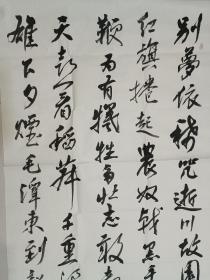 別夢依稀咒逝川故园
红旗捲起農奴戟黑手
鞭为有犧牲多壮志敢
天喜看稻菽千重浪
雄下夕煙毛澤東到韶